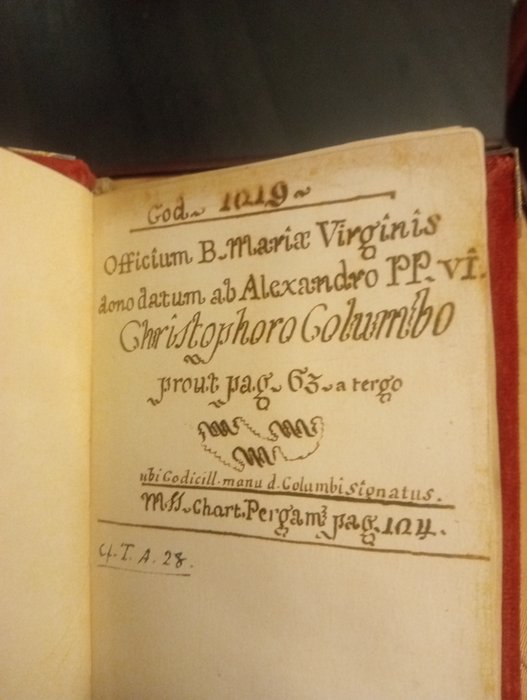 Cod. 1019
Officium B. Mariæ Virginis
dono datum ab Alexandro PP. VI.
Christophoro Columbo
prout pag. 63. a tergo
ubi Codicill. manu d. Columbi signatus.
MSS. chart. Pergam. pag. 104.
cf. T. A. 28.